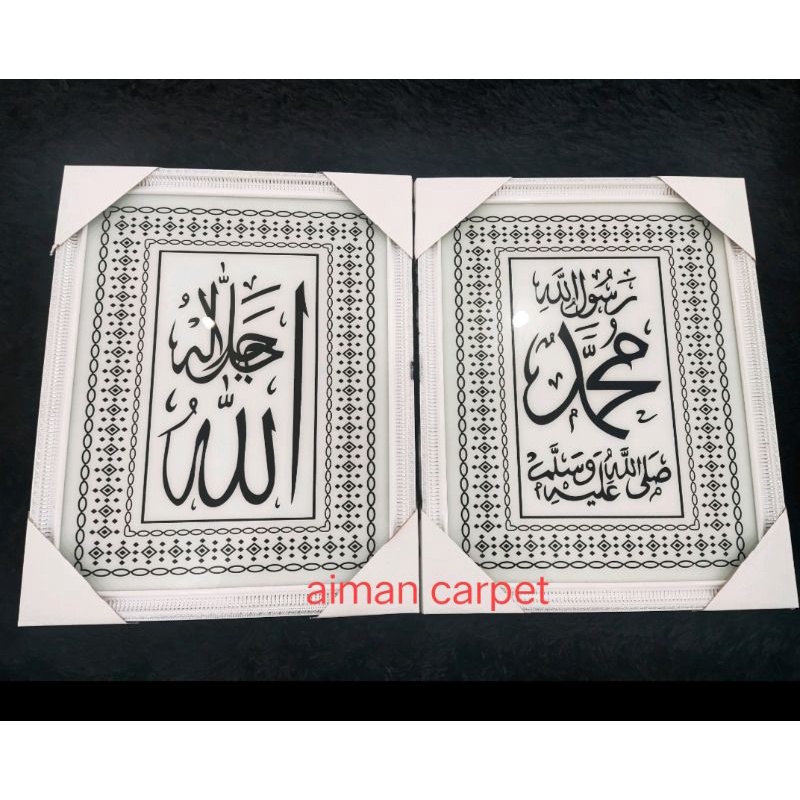 الله
جل جلاله
رَسُولُ اللَّه
مُحَمَّد
صَلَى اللَّهُ عَلَيْهِ وَسَلَّمَ
aiman carpet